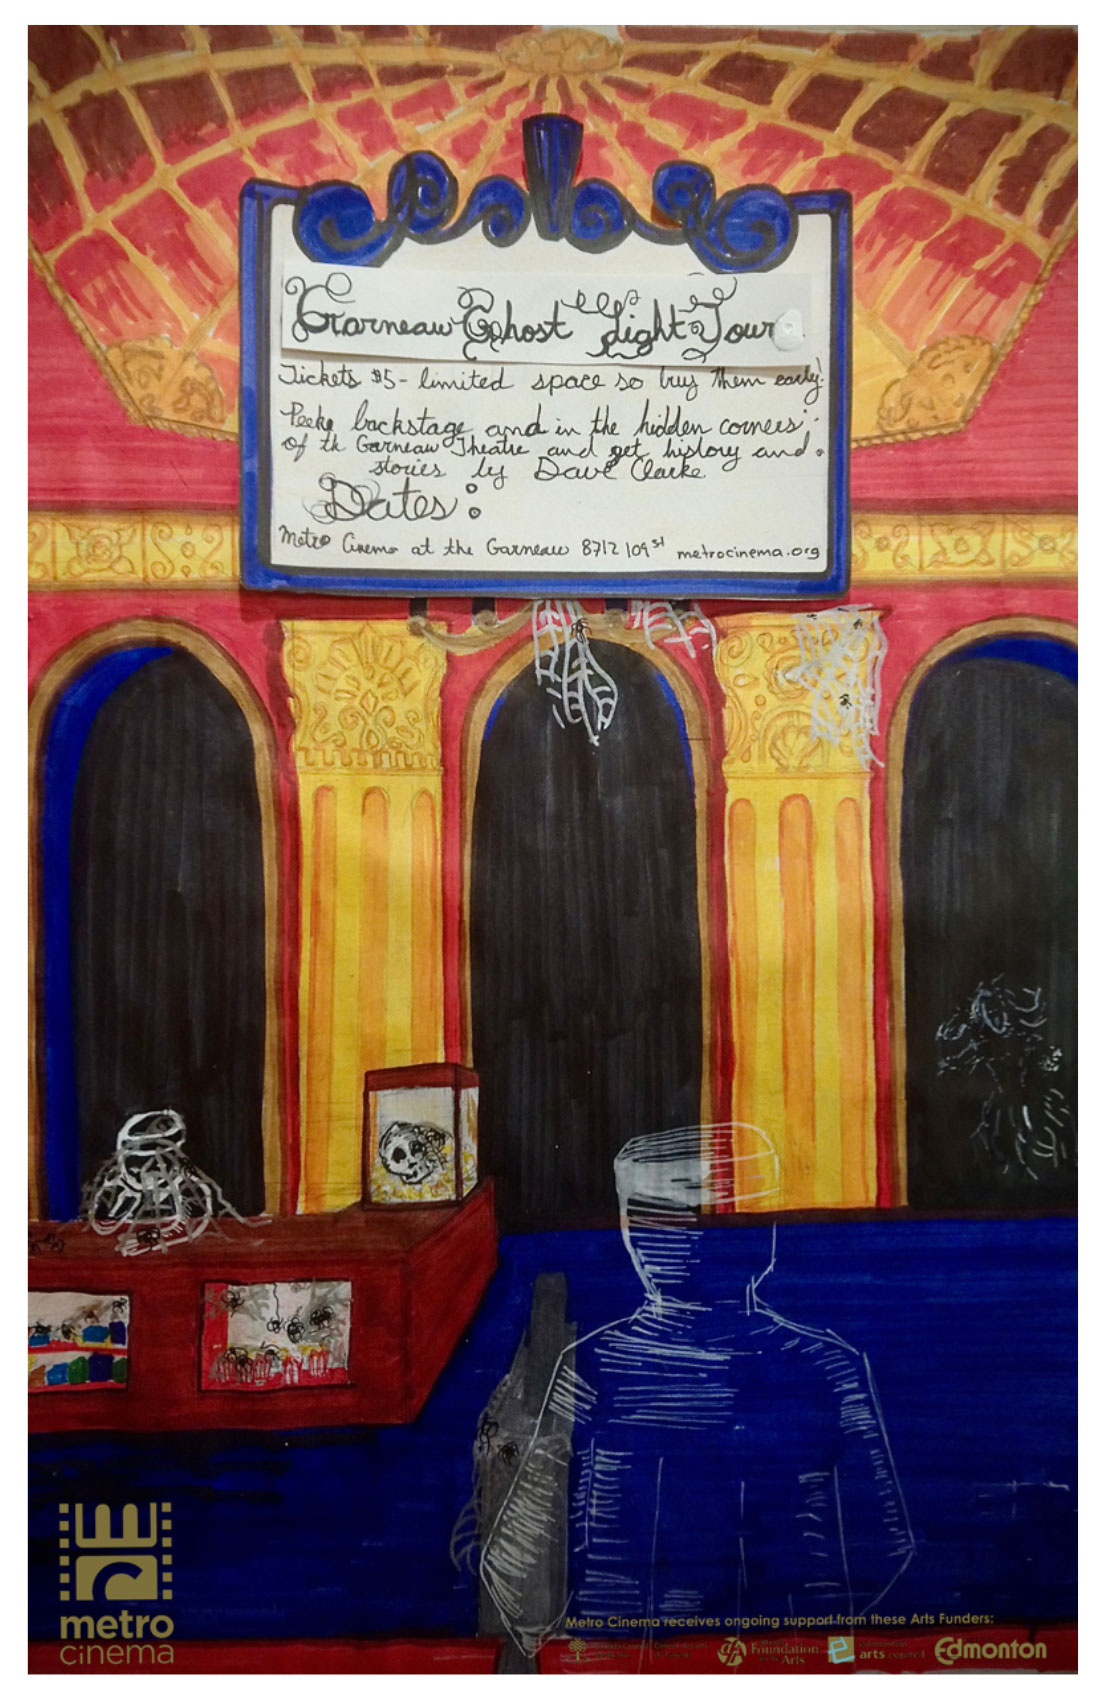 Garneau Ghost Light Tour
Tickets $5 - limited space so buy them early!
Peeke backstage and in the hidden corners
of th Garneau Theatre and get history and
stories by Dave Clarke
Dates:
Metro Cinema at the Garneau 8712 109 st metrocinema.org
metro
cinema
Metro Cinema receives ongoing support from these Arts Funders:
Foundation
for the
Arts
arts council
Edmonton